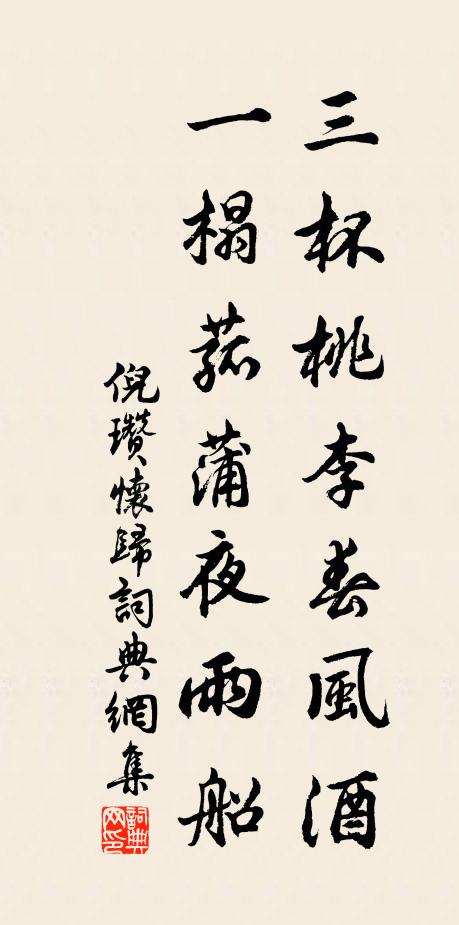 三杯桃李春風酒
一榻菰蒲夜雨船
倪瓚懷歸詞典網集
詞典網印